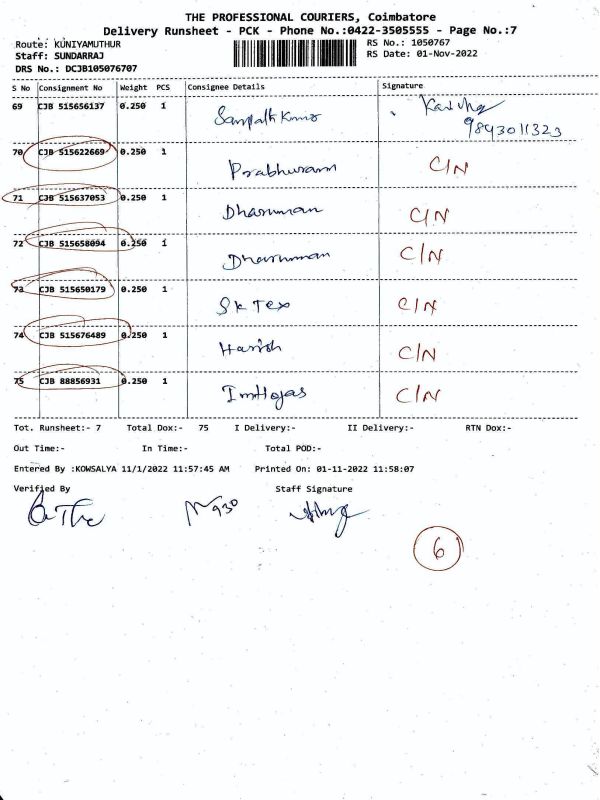 THE PROFESSIONAL COURIERS, Coimbatore
Delivery Runsheet - PCK - Phone No.:0422-3505555 - Page No.:7
Route: KUNIYAMUTHUR RS No.: 1050767
Staff: SUNDARRAJ RS Date: 01-Nov-2022
DRS No.: DCJB105076707
S No Consignment No Weight PCS Consignee Details Signature
69 CJB 515656137 0.250 1 Sampath Kumar
9843011323
70 CJB 515622669 0.250 1 Prabhuram C/N
71 CJB 515637053 0.250 1 Dharuman C/N
72 CJB 515658094 0.250 1 Dharuman C/N
73 CJB 515650179 0.250 1 SK Tex C/N
74 CJB 515676489 0.250 1 Harish C/N
75 CJB 88856931 0.250 1 C/N
Tot. Runsheet:- 7 Total Dox:- 75 I Delivery:- II Delivery:- RTN Dox:-
Out Time:- In Time:- Total POD:-
Entered By :KOWSALYA 11/1/2022 11:57:45 AM Printed On: 01-11-2022 11:58:07
Verified By Staff Signature
930
6